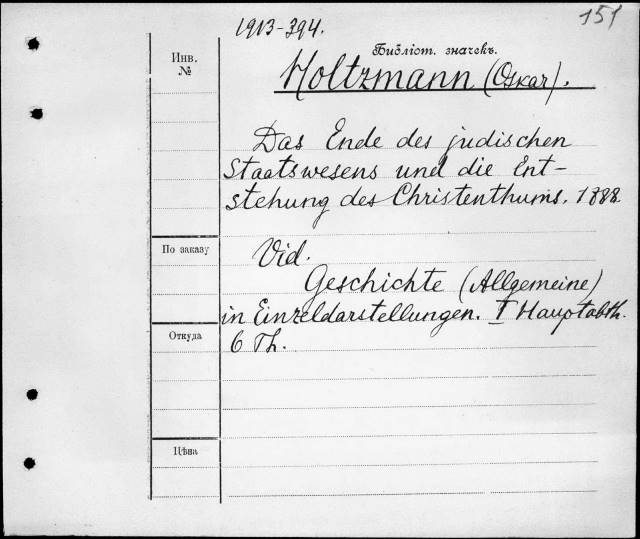 1913-394.
151
Инв.
№
Библіот. значекъ.
Holtzmann (Oskar).
Das Ende des judischen
Staatswesens und die Ent-
stehung des Christenthums. 1888
По заказу
Vid.
Geschichte (Allgemeine)
in Einzeldarstellungen. I Hauptabth.
Откуда
6 Th.
Цѣна